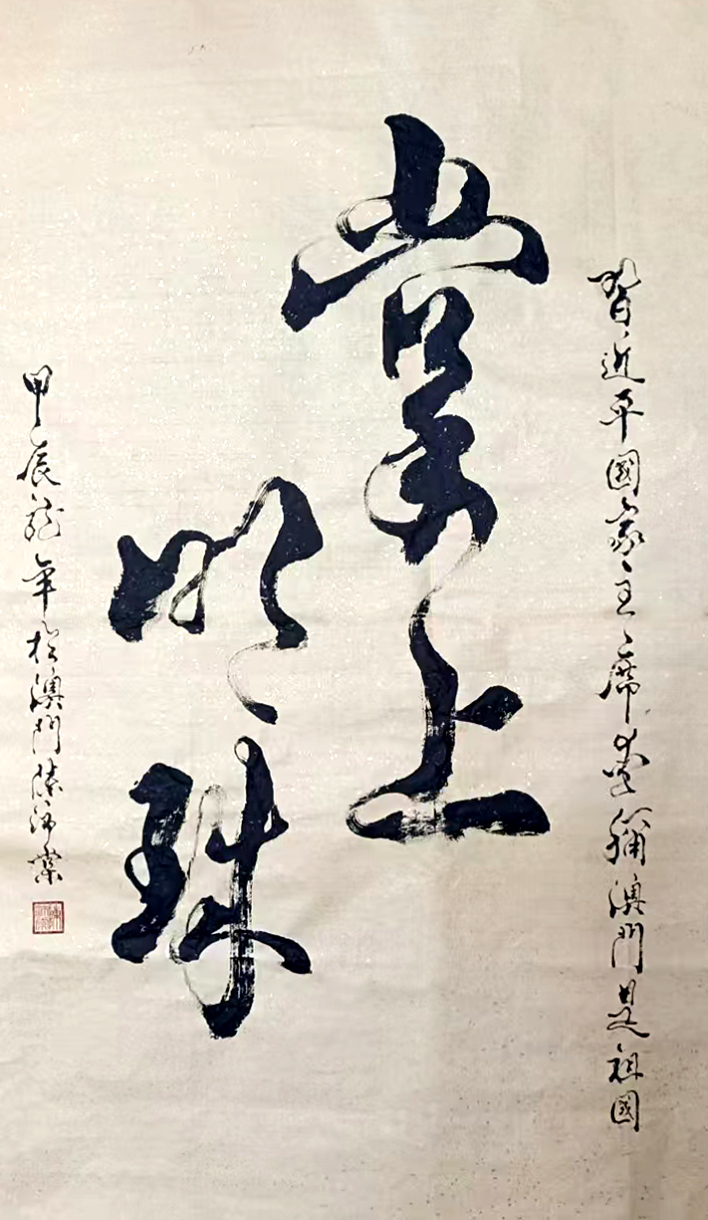 習近平國家主席堂稱澳門是祖國
掌上
明珠
甲辰龍年於澳門陳沛棠